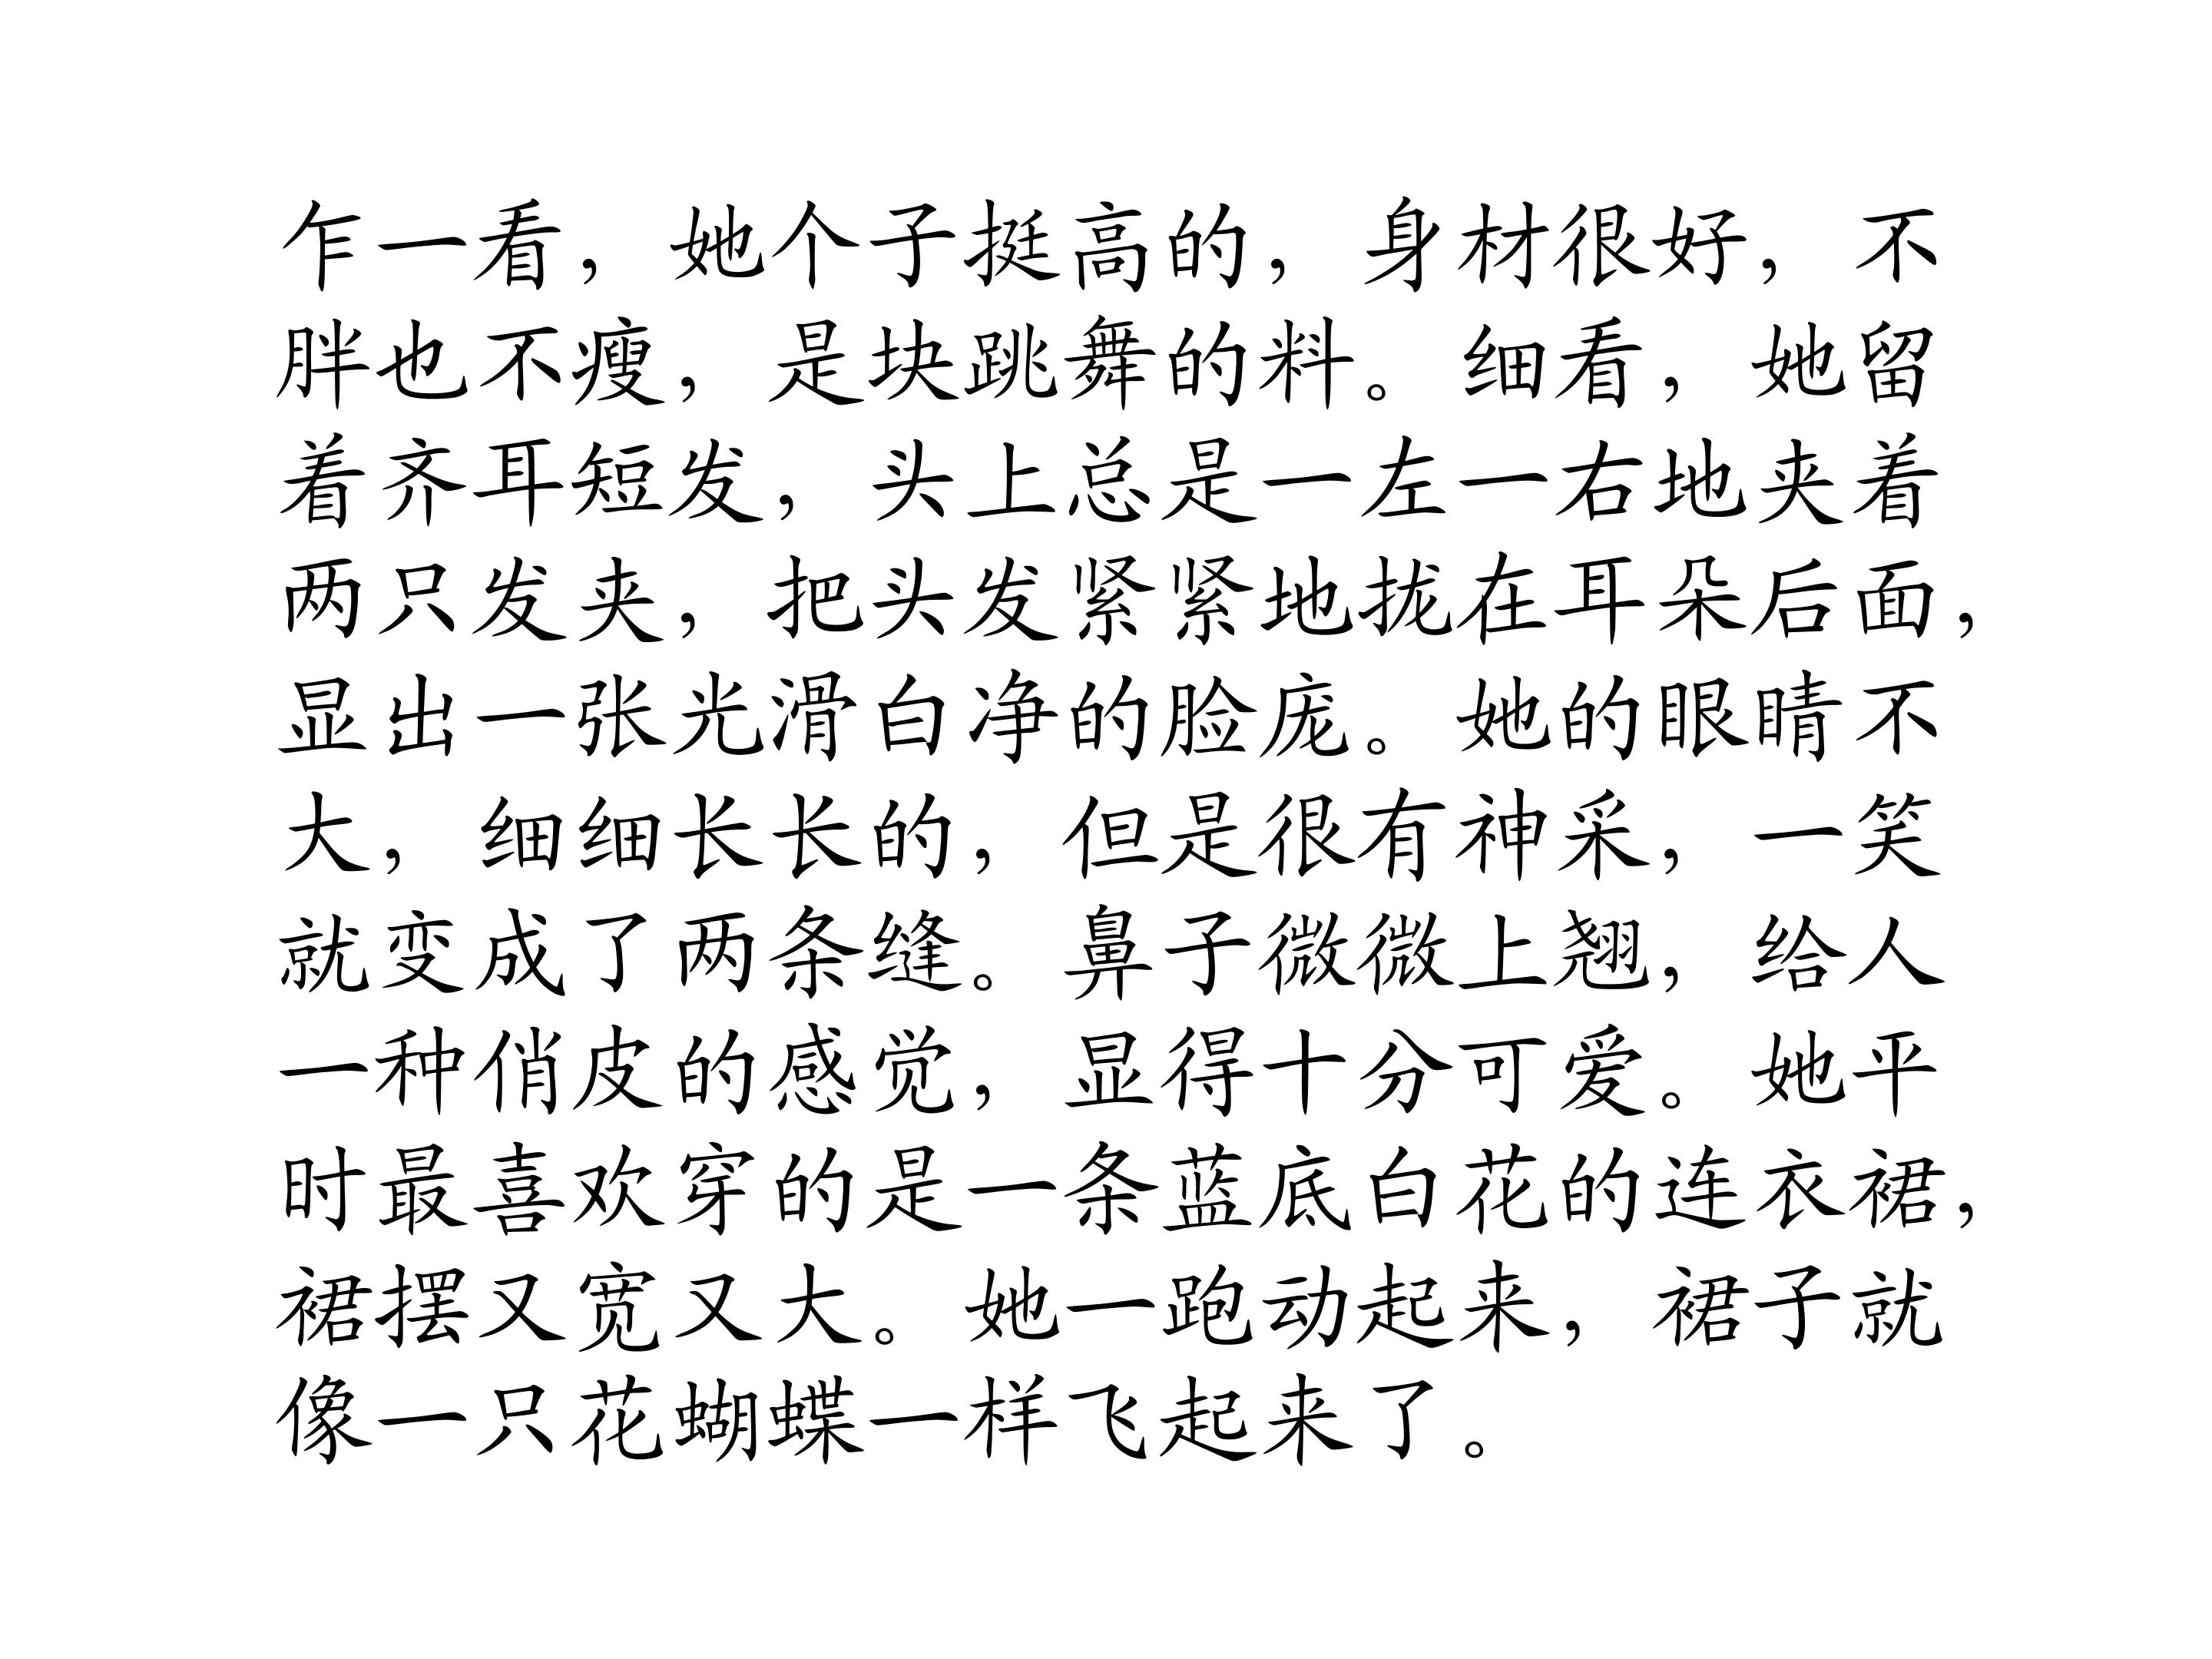 乍一看，她个子挺高的，身材很好，不
胖也不瘦，是块跳舞的料。细看，她留
着齐耳短发，头上总是一左一右地夹着
两只发夹，把头发紧紧地拢在耳朵后面，
显出一张光滑白净的脸庞。她的眼睛不
大，细细长长的，但是很有神采，一笑
就变成了两条缝。鼻子微微上翘，给人
一种俏皮的感觉，显得十分可爱。她平
时最喜欢穿的是一条蓝底白花的连衣裙，
裙摆又宽又大。她一跑动起来，裙子就
像一只花蝴蝶一样飞起来了。